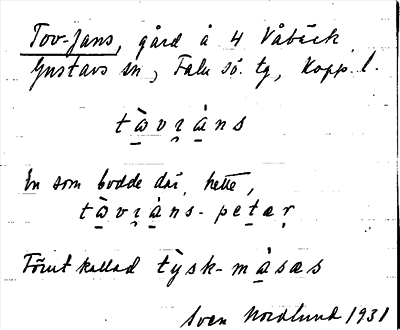 Tov-Jans, gård å 4 Våbäck
Gustavs sn, Falu sö. tg, Kopp. l.
tàvıàns
En som bodde där, hette,
tàvıàns-petær
Förut kallad tỳsk-màsæs
Sven Nordlund 1931